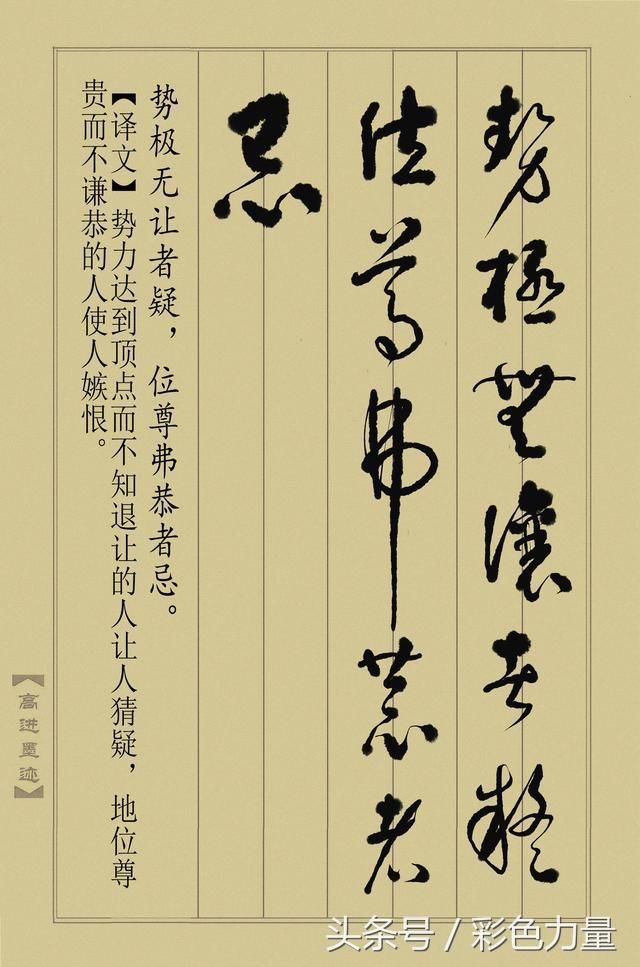 势極無讓者疑
位尊弗恭者
忌
势极无让者疑，位尊弗恭者忌。
【译文】势力达到顶点而不知退让的人让人猜疑，地位尊
贵而不谦恭的人使人嫉恨。
【高进墨迹】
头条号／彩色力量